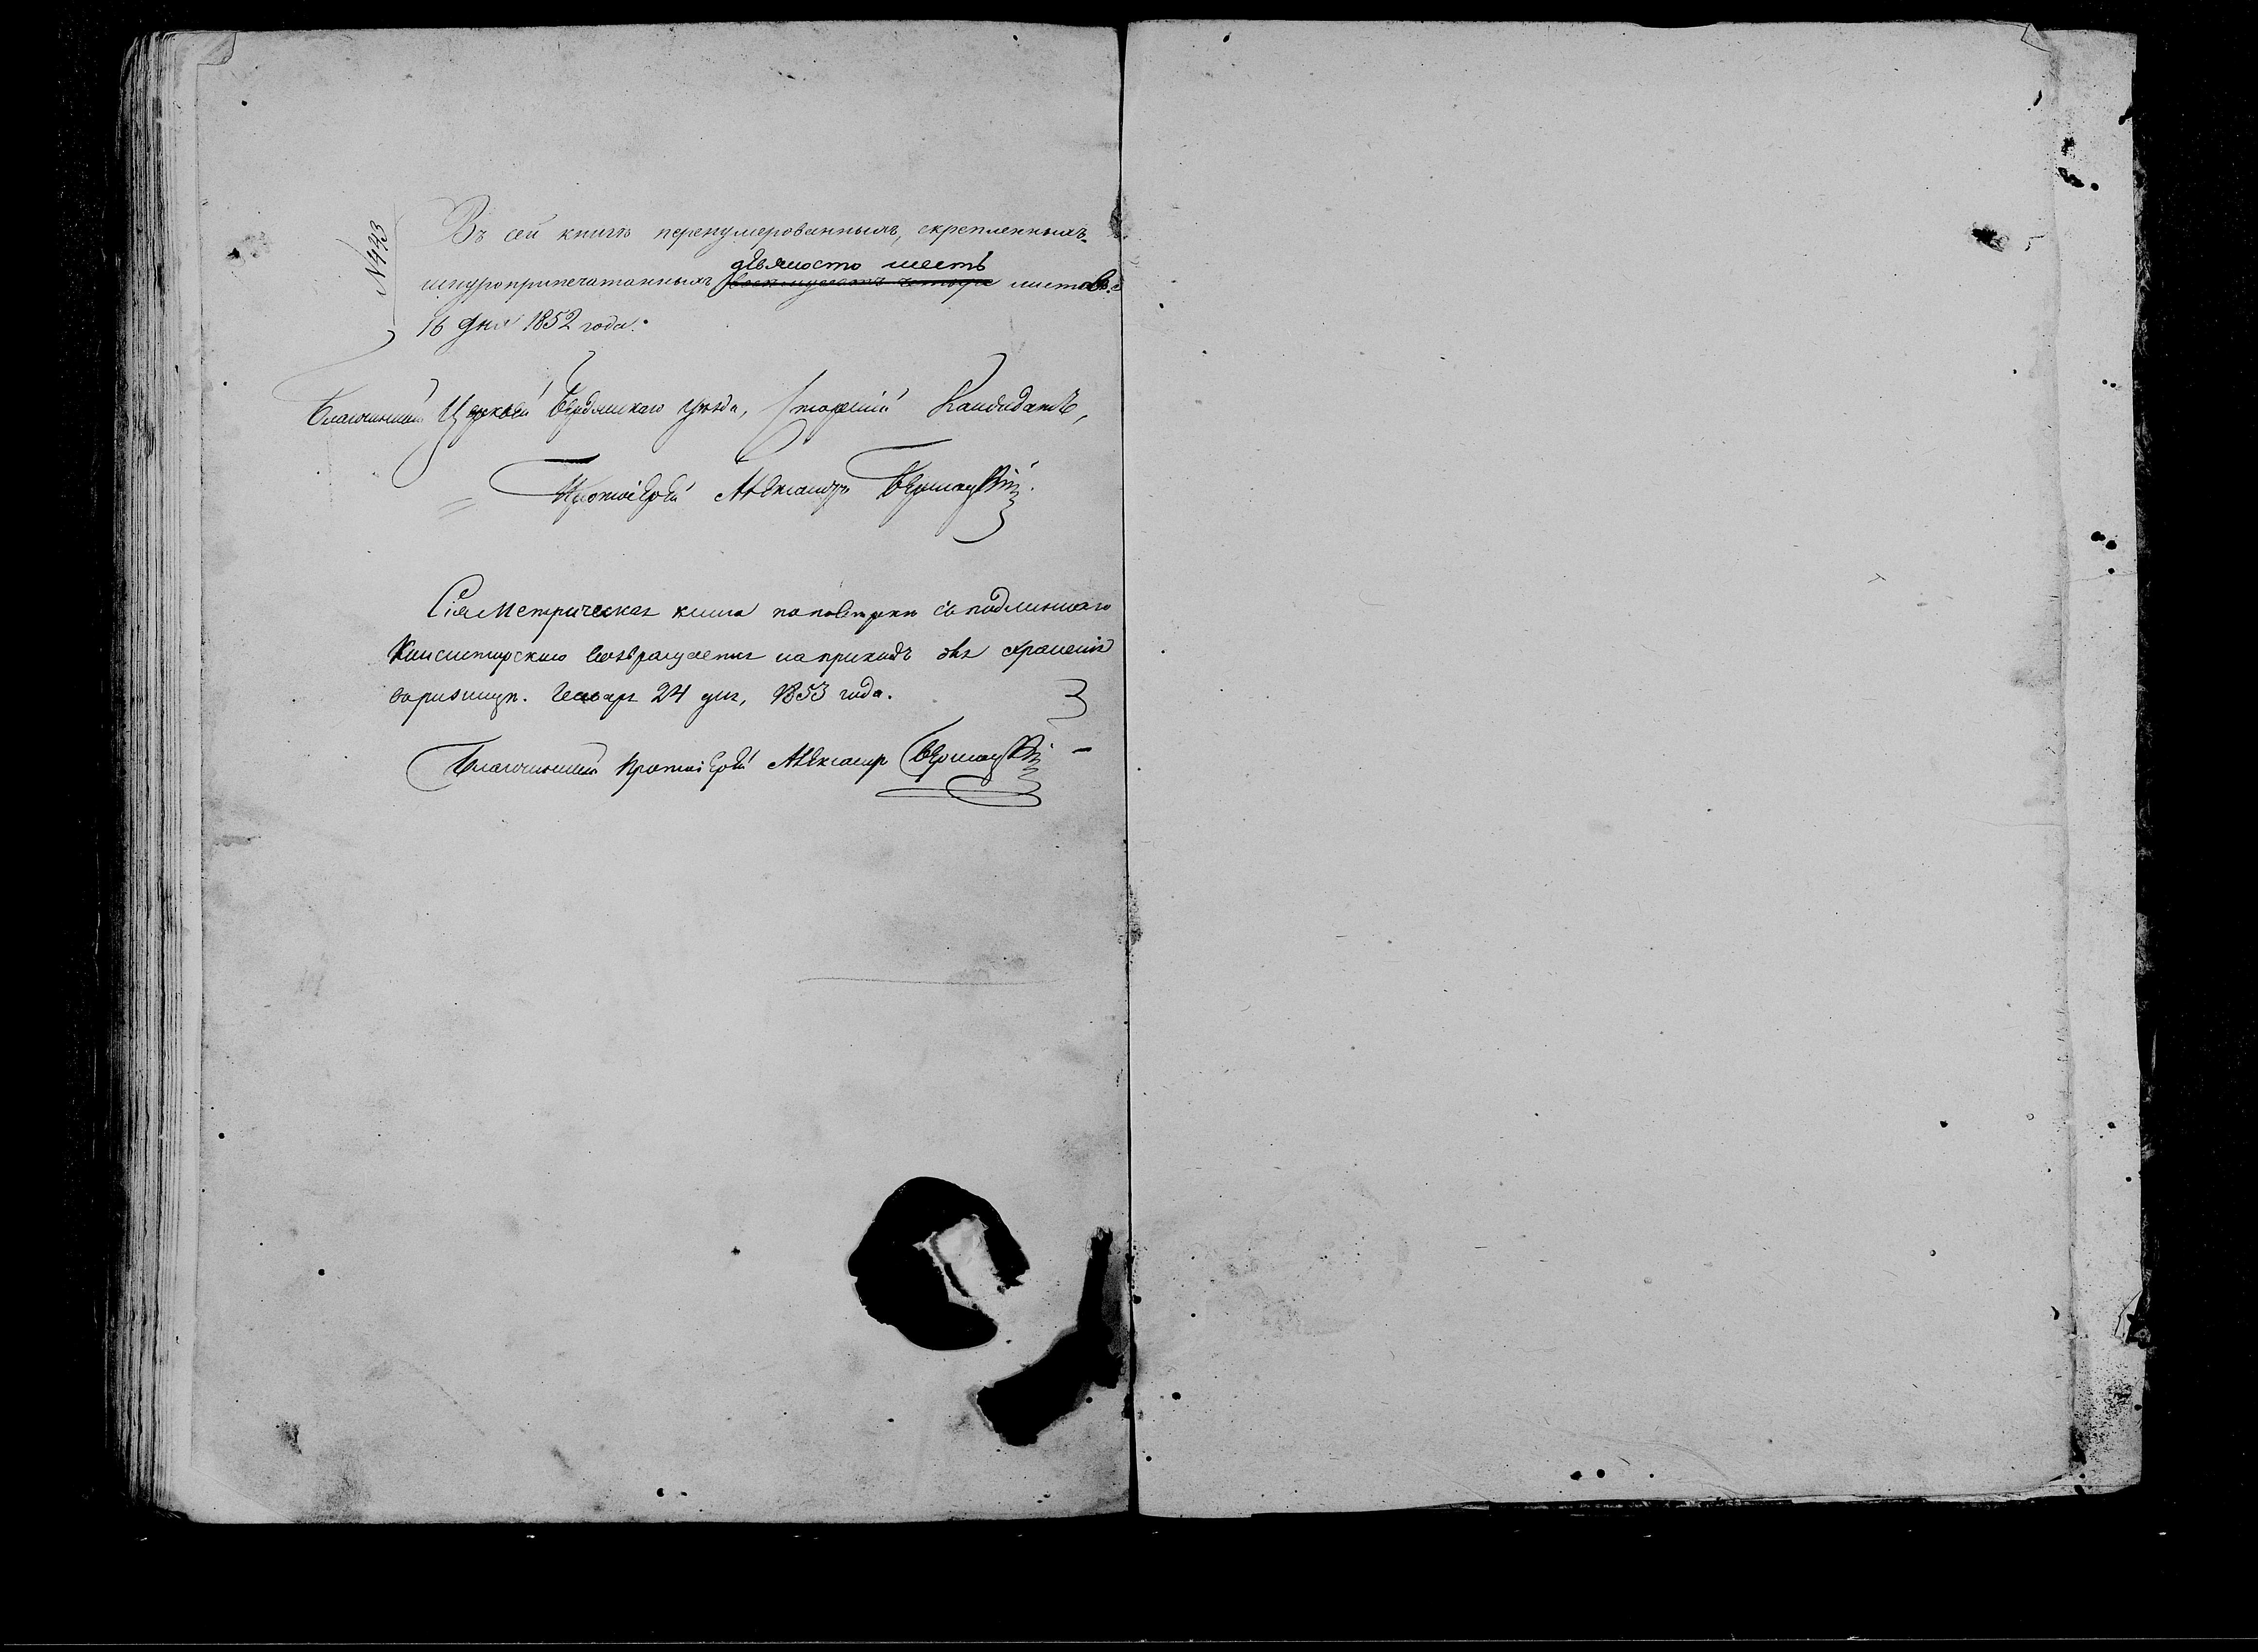 № 443
Въ сей книгѣ перенумерованныхъ, скрепленныхъ
девяносто шесть
шнуроприпечатанныхъ восемьдесятъ четыре листовъ
16 дня 1852 года.
Благочинный Церквей Бердянскаго уѣзда, Старшій Кандидатъ,
Протоіерей Александръ
Сія Метрическая книга по повѣркѣ съ подлинного
Консисторскою возвращается на приходъ для храненія
въ ризницѣ. Генваря 24 дня, 1853 года.
Благочинный Протоіерей Александръ